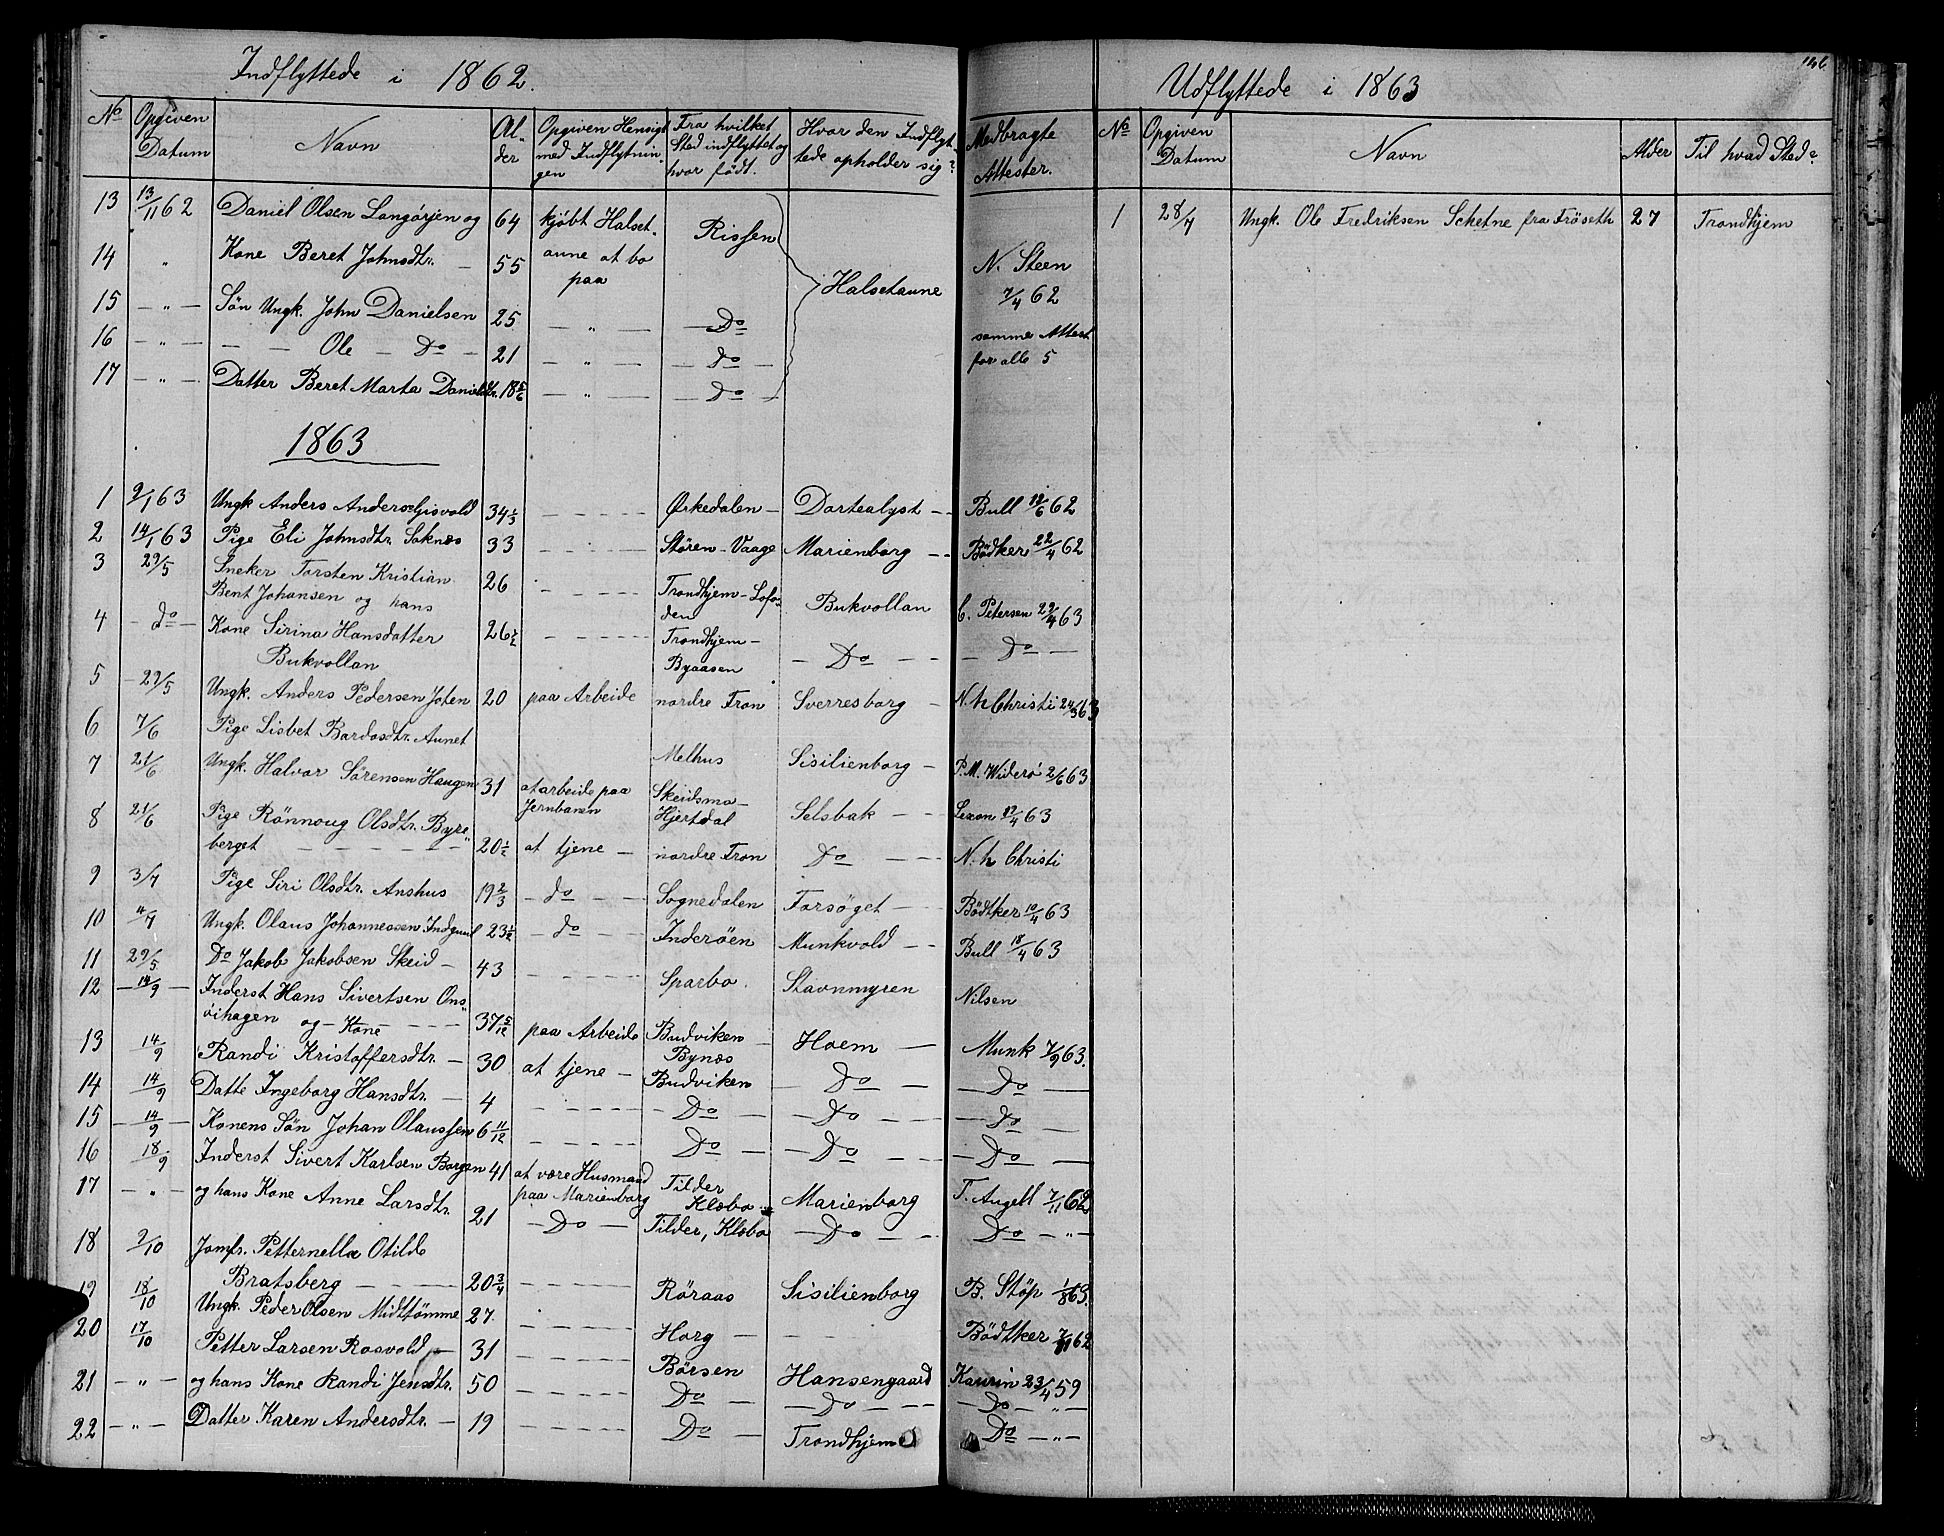 Indflyttede i 1862.
No Opgiven Datum Navn Al-der Opgiven Hensigt med Indflytnin-gen Fra hvilket Sted indflyttet og hvor född. Hvor den Indflyt-tede opholder sig? Medbragte Attester.
13 13/11 62 Daniel Olsen Langörjen og 64 kjöbt Halset- Rissen
14 " Kone Beret Johnsdtr. — 55 aune at bo paa Halsetaune N. Steen 7/4 62
15 — " — Sön Ungk. John Danielsen 25 — " — Do samme Attest
16 — " — — — Ole — Do — 21 — " — Do for alle 5
17 — " — Datter Beret Marta Danielsdtr. 18 5/6 — " — Do
1863
1 2/1 63 Ungk Anders Anders. Gjisvold 34 1/3 Ørkedalen Dortealyst Bull 12/6 62
2 14/1 63 Pige Eli Johnsdtr. Soknæs 33 Stören - Vaage Marienborg Bödker 22/4 62
3 29/5 Sneker Torsten Kristian
Bent Johansen og hans 26 Trondhjem - Lofoden Bukvollan C. Petersen 29/4 63
4 do Kone Sirina Hansdatter
Bukvollan 26 1/2 Trondhjem - Byaasen Do Do
5 29/5 Ungk. Anders Pedersen Joten 20 paa Arbeide nordre Fron Sverresborg N. h Christi 24/3 63
6 7/6 Pige Lisbet Bardosdtr. Aunet Melhus Sisilienborg P. M. Widerö 2/6 63
7 21/6 Ungk. Halvor Sörensen Haugen 31 at arbeide paa Jernbanen Skeidsmo - Hjertdal Selsbak Lexon 12/4 63
8 21/6 Pige Rönnoug Olsdtr. Byre"
berget 20 1/2 at tjene nordre Fron Do N. h Christi
9 3/7 Pige Siri Olsdtr. Anshus 19 2/3 do Sognedalen Forsöget Bödtker 10/4 63
10 4/7 Ungk. Olaus Johannessen 23 1/2 do Inderöen Munkvold Bull 18/4 63
11 29/5 Do Jakob Jakobsen Skeid 43 Sparbo. Stavnmyren Nilsen
12 14/9 Inderst Hans Sivertsen Ons"
öihagen og - Kone 37 5/12 paa Arbeide Budviken Bynæs Hoem Munk 7/9 63.
13 14/9 Randi Kristoffersdtr. 30 at tjene Budviken Do Do
14 14/9 Datte Ingeborg Hansdtr. 4 Do Do Do
15 14/9 Konens Sön Johan Olaussen 6 11/12 Do Do Do
16 18/9 Inderst Sivert Karlsen Borgen 41 at være Husmand paa Marienborg Tilder Klæbo Marienborg T. Angell 7/11 62
17 — " — og hans Kone Anne Larsdtr. 21 Do Tilder, Klæbo Do Do — " —
18 2/10 Jomfr. Petternella Otilde
Bratsberg 20 3/4 Röraas Sisilienborg B. Stöp 1/8 63.
19 18/10 Ungk. Peder Olsen Midttömme 27. Horg Bödtker 7/11 62
20 17/10 Petter Larsen Rosvold 31 Börsen Hansengaard Kaurin 23/4 59
21 — " — og hans Kone Randi Jensdtr. 50 Do Do Do — " —
22 — " — Datter Karen Andersdtr. 19 Do Trondhjem Do — " —
Udflyttede i 1863
146
No Opgiven Datum Navn Alder Til hvad Sted?
1 28/4 Ungk. Ole Fredriksen Schetne fra Fröseth 27 Trondhjem